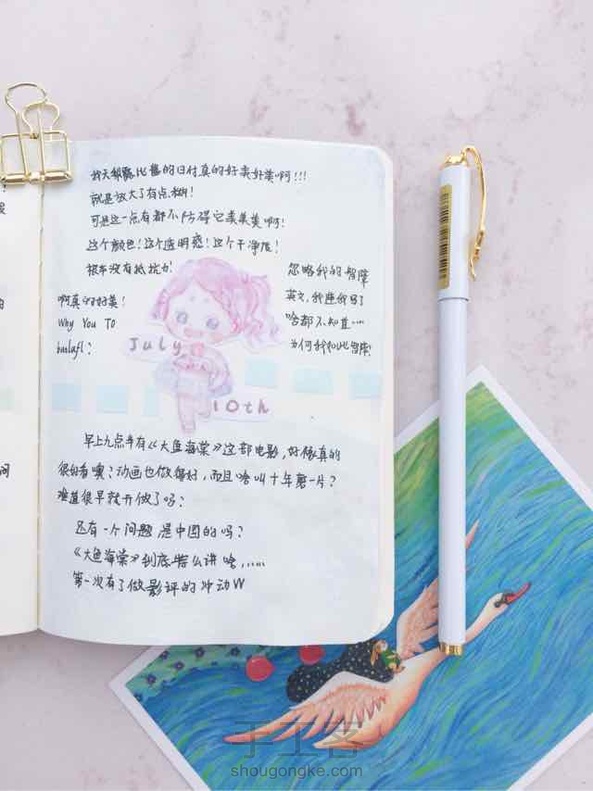 我天 比基的日付真的好美好美啊!!!
就是放大了有点糊!
可是这一点有都不妨碍它美美美啊!
这个颜色!这个透明感!这个干净度!
根本没有抵抗力!
啊真的好美!
Why You To
忽略我的智障
英文,我连我写了
啥都不知道……
为何我如此智障
July
10th
早上九点半有《大鱼海棠》这部电影,好像真的
很好看噢?动画也做得好,而且啥叫十年第一片?
难道很早就开做了吗?
还有一个问题 是中国的吗?
《大鱼海棠》到底啥么讲啥……
第一次有了做影评的冲动W
手工客
shougongke.com